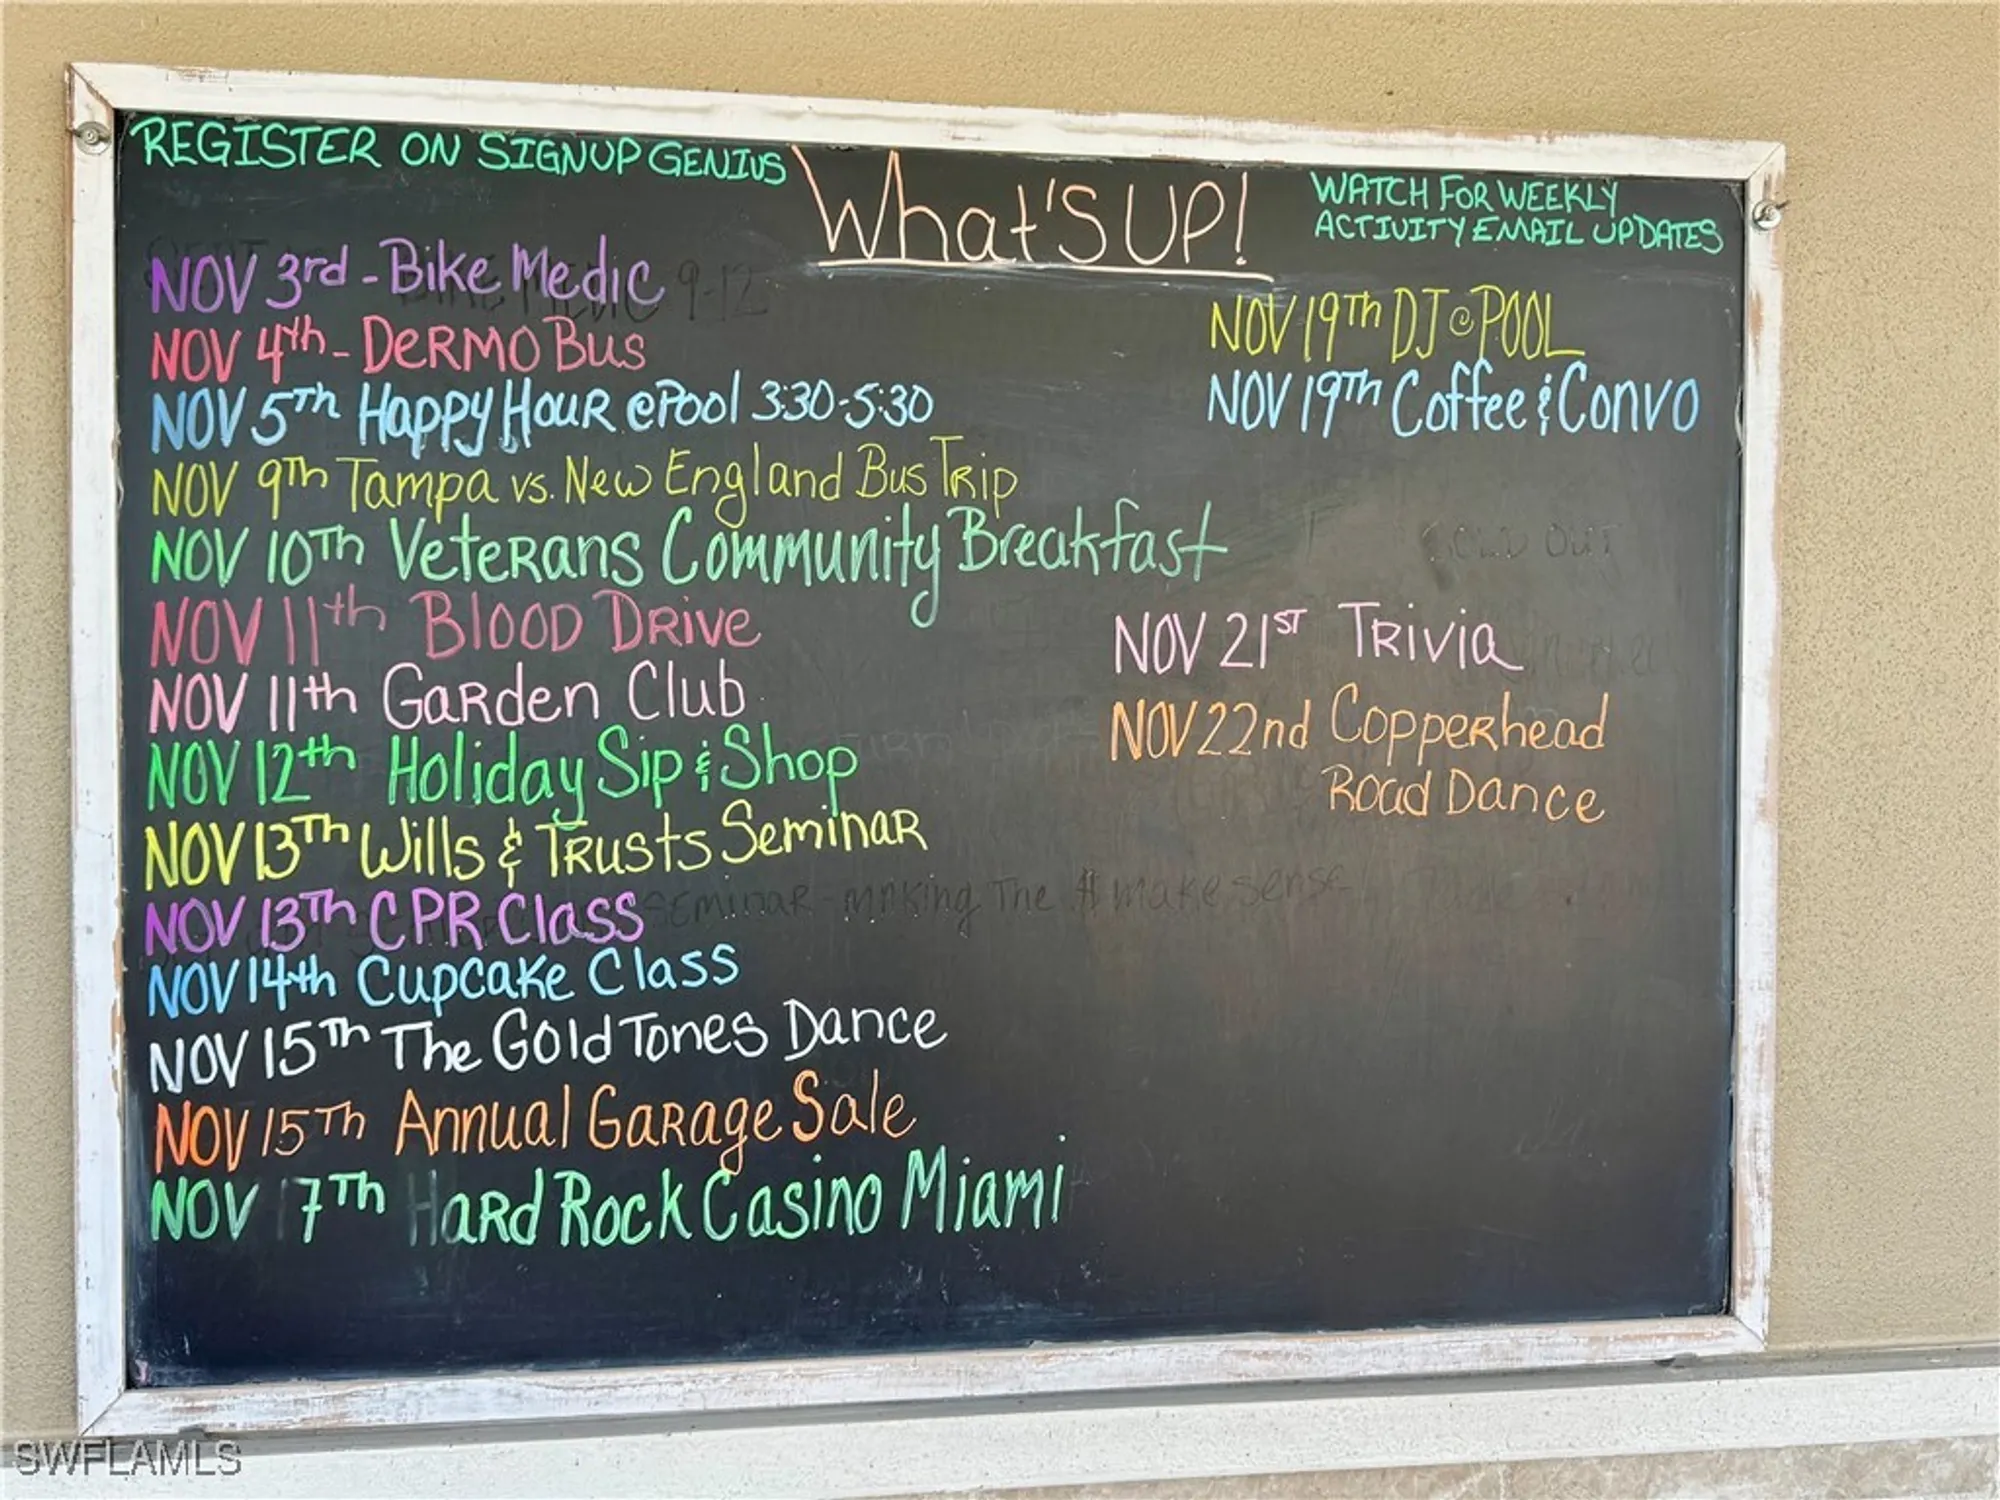 REGISTER ON SIGNUP GENIUS
What'S UP!
WATCH FOR WEEKLY
ACTIVITY EMAIL UPDATES
NOV 3rd - Bike Medic
9-12
NOV 4th - DERMO BUS
NOV 5TH Happy Hour @Pool 3:30-5:30
NOV 9TH Tampa vs. New England Bus Trip
NOV 10TH Veterans Community Breakfast
NOV 11th Blood Drive
NOV 11th Garden Club
NOV 12th Holiday Sip & Shop
NOV 13TH Wills & Trusts Seminar
NOV 13TH CPR Class
SEMINAR - MAKING THE $ make sense
NOV 14th Cupcake Class
NOV 15TH The Gold Tones Dance
NOV 15TH Annual Garage Sale
NOV 17TH Hard Rock Casino Miami
NOV 19TH DJ @ POOL
NOV 19TH Coffee & Convo
SOLD OUT
NOV 21ST TRIVIA
NOV 22nd Copperhead
Road Dance
SWFLAMLS